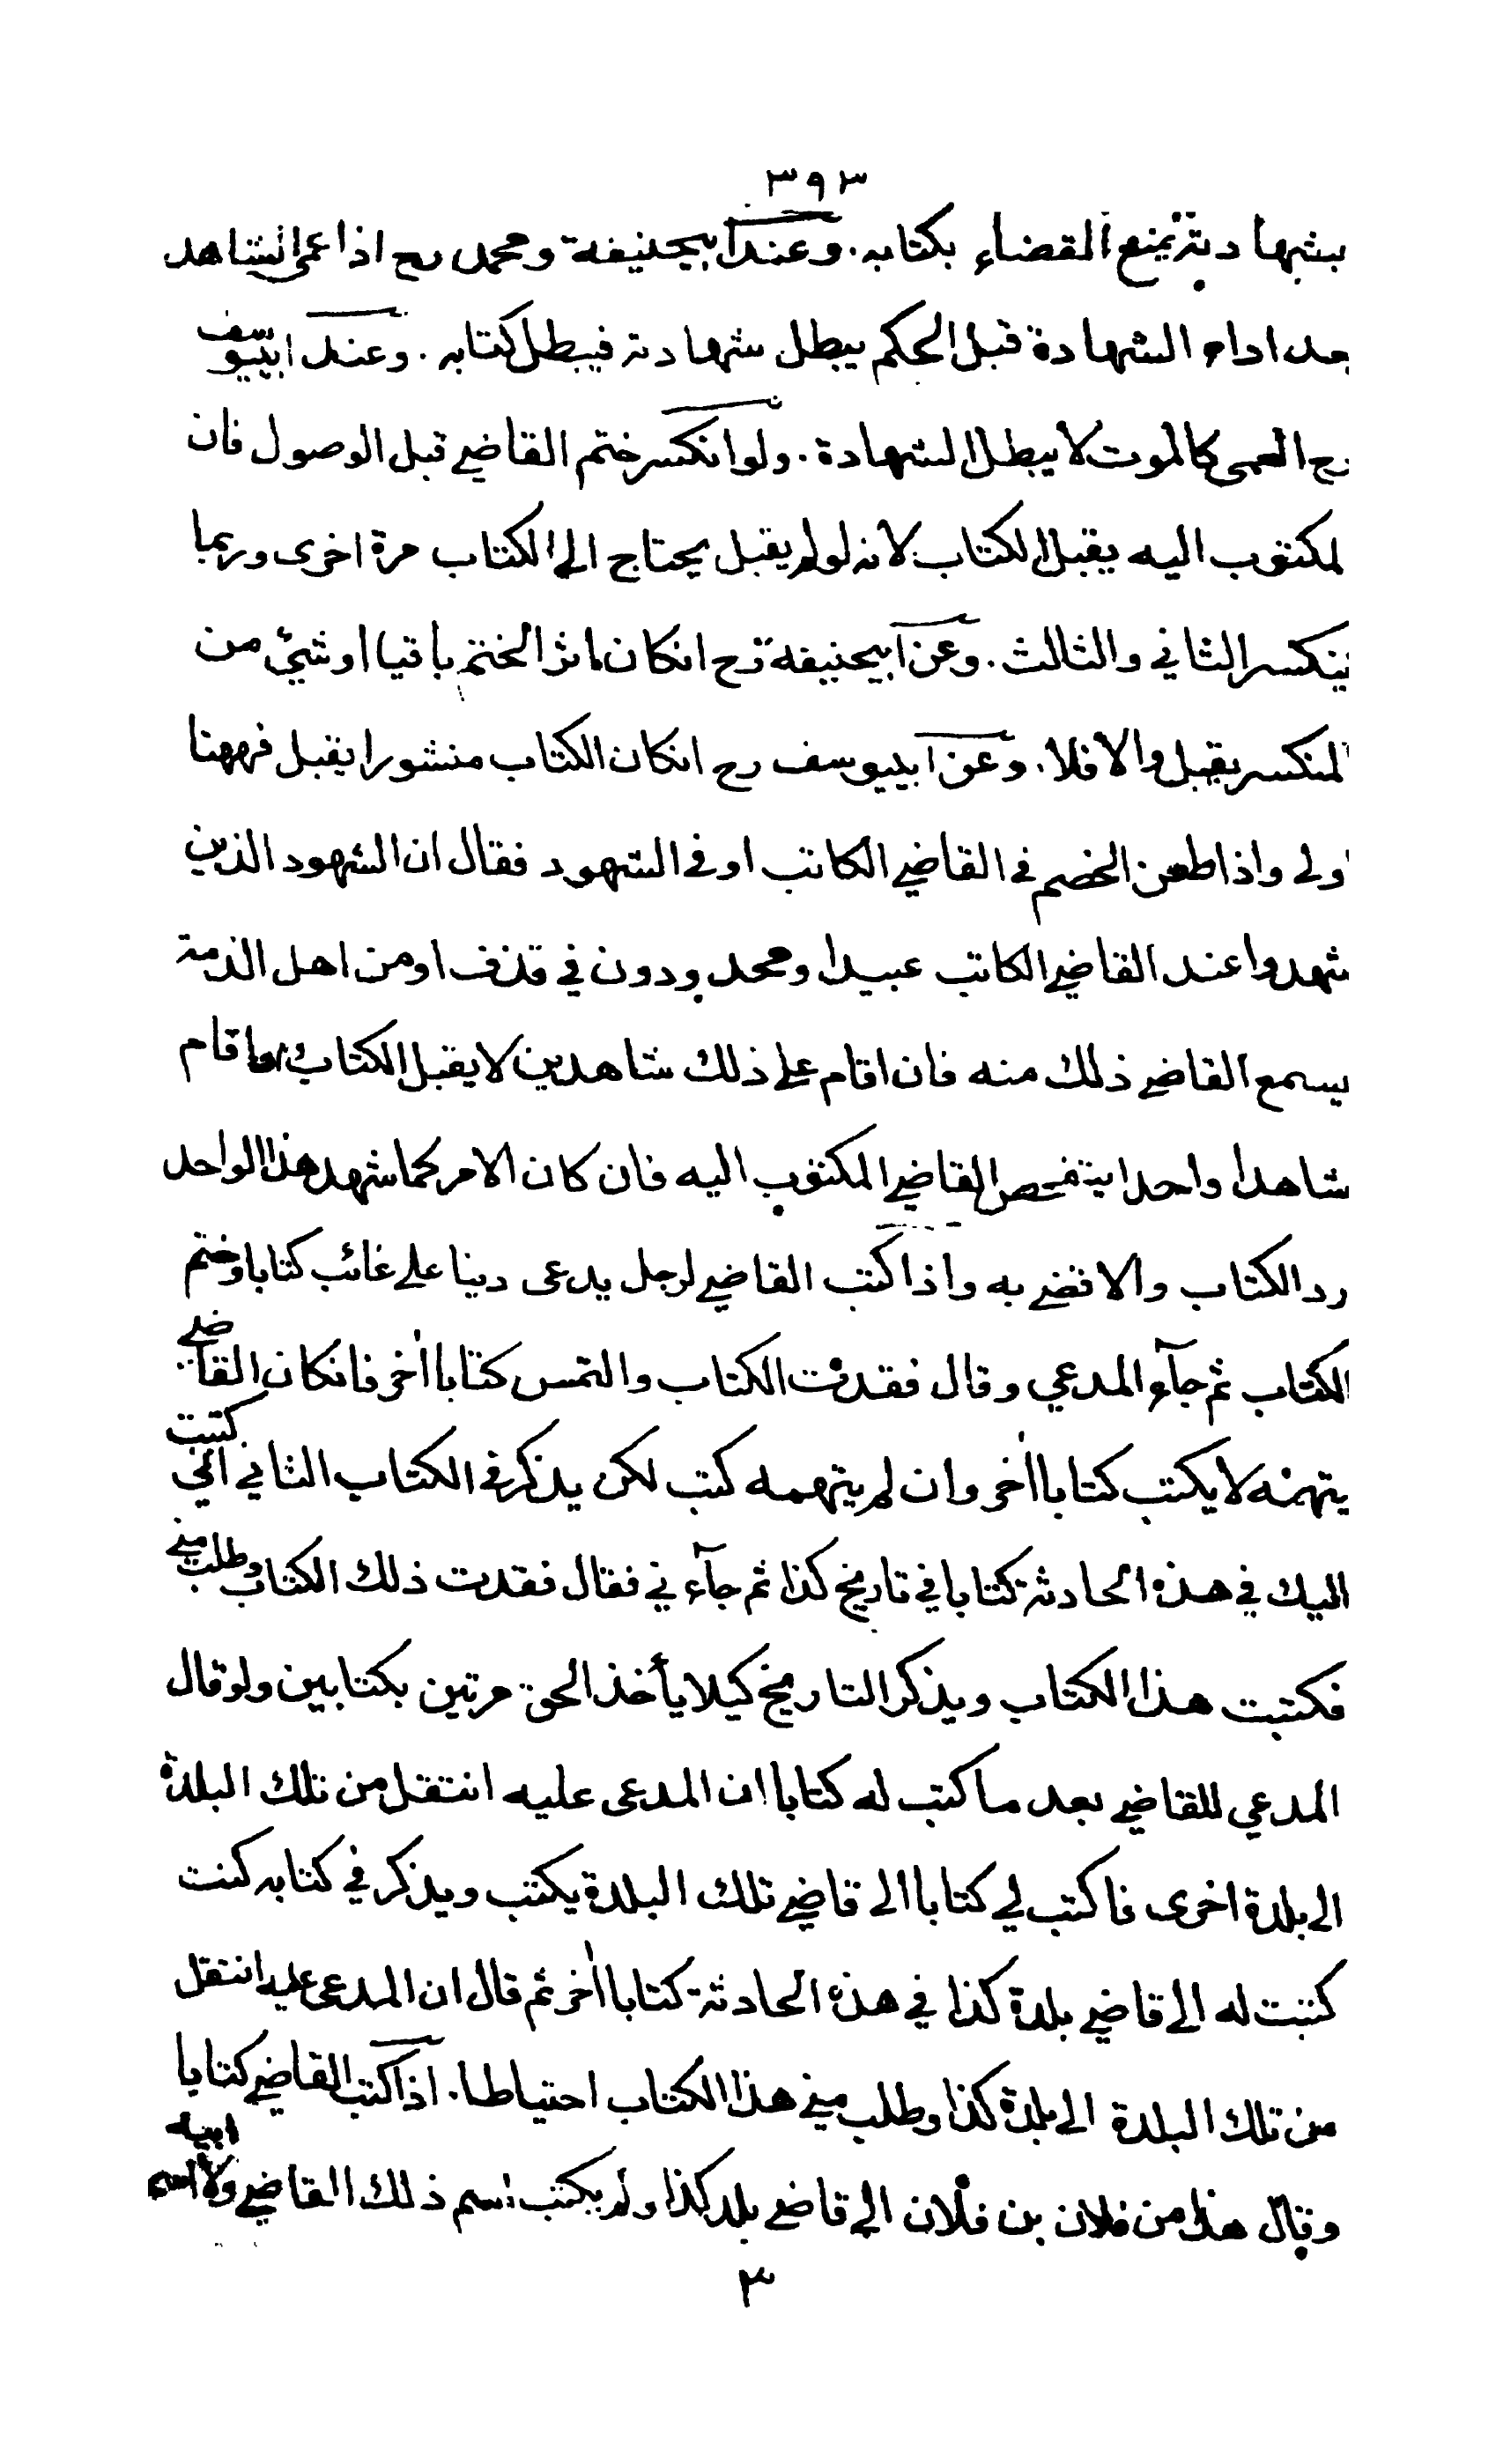 ٣٩٣
بشهادته يمنع القضاء بكتابه. وعند ابيحنيفة ومحمد رح اذا عمى الشاهد
بعد اداء الشهادة قبل الحكم يبطل شهادته فيبطل كتابه. وعند ابييوسف
رح العمى كالموت لا يبطل الشهادة. ولو انكسر ختم القاضي قبل الوصول فان
لمكتوب اليه يقبل الكتاب لانه لو لم يقبل يحتاج الى الكتاب مرة اخرى وربما
ينكسر الثاني والثالث. وعن ابيحنيفة رح انكان اثر الختم باقيا او شيء من
المنكسر يقبل والا فلا. وعن ابييوسف رح انكان الكتاب منشورا يقبل فههنا
اولى واذا طعن الخصم في القاضي الكاتب او في الشهود فقال ان الشهود الذين
شهدوا عند القاضي الكاتب عبيدا ومحدودون في قذف او من اهل الذمة
يسمع القاضي ذلك منه فان اقام على ذلك شاهدين لا يقبل الكتاب اقام
شاهدا واحدا يتفحص القاضي المكتوب اليه فان كان الامر كما شهد هذا الواحد
رد الكتاب والا قضى به واذا كتب القاضي لرجل يدعى دينا على غائب كتابا وختم
الكتاب ثم جآء المدعي وقال فقدت الكتاب والتمس كتابا اٰخر فانكان القاضي
يتهمه لا يكتب كتابا اٰخر وان لم يتهمه كتب لكن يذكر في الكتاب الثاني اني كتبت
اليك في هذه الحادثة كتابا في تاريخ كذا ثم جآءني فقال فقدت ذلك الكتاب وطلب مني
فكتبت هذا الكتاب ويذكر التاريخ كيلا يأخذ الحق مرتين بكتابين ولو قال
المدعي للقاضي بعد ما كتب له كتابا ان المدعى عليه انتقل من تلك البلدة
الى بلدة اخرى فاكتب لي كتابا الى قاضي تلك البلدة يكتب ويذكر في كتابه كنت
كتبت له الى قاضي بلدة كذا في هذه الحادثة كتابا اٰخر ثم قال ان المدعى عليه انتقل
من تلك البلدة الى بلدة كذا وطلب مني هذا الكتاب احتياطا. اذا كتب القاضي كتابا
وقال هذا من فلان بن فلان الى قاضي بلد كذا ولم يكتب اسم ذلك القاضي ولا اسم ابيه
٣